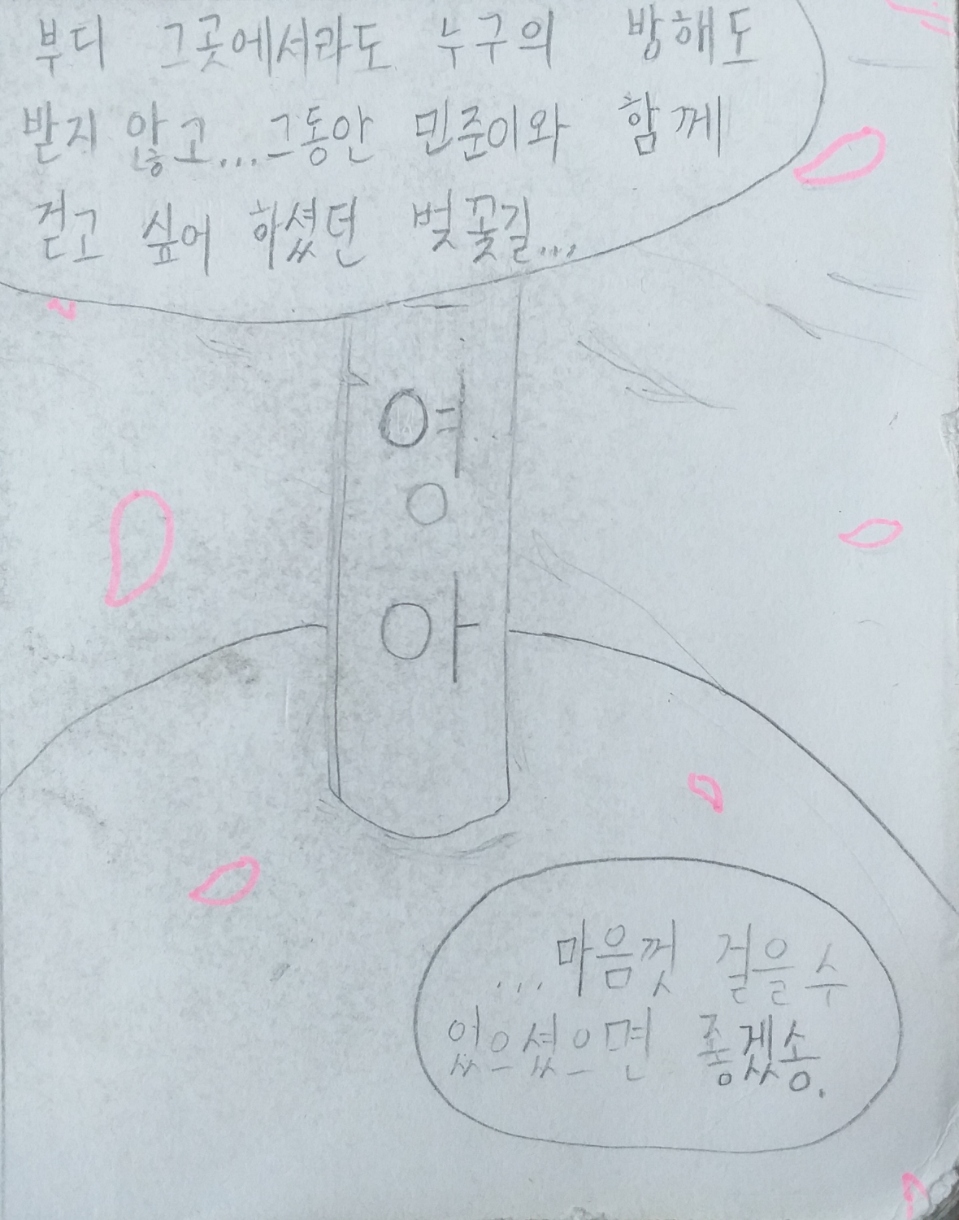 부디 그곳에서라도 누구의 방해도
받지 않고...그동안 민준이와 함께
걷고 싶어 하셨던 벚꽃길...
영
아
...마음껏 걸을 수
있으셨으면 좋겠송.